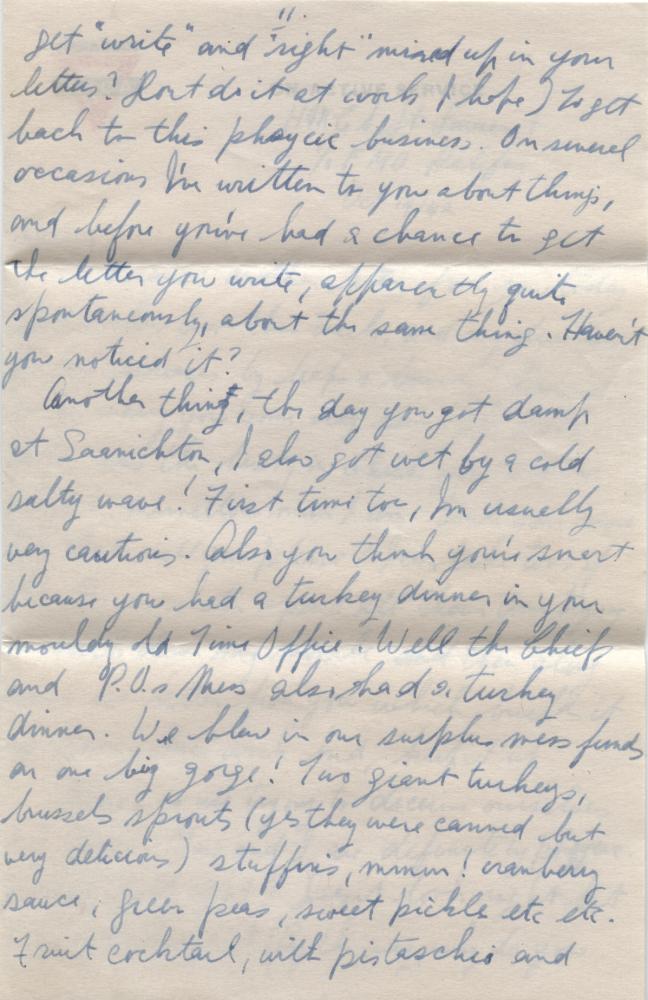 11.
get "write" and "right" mixed up in your
letters? Don't do it at work (I hope) To get
back to this phsycic business. On several
occasions I've written to you about things,
and before you've had a chance to get
the letter you write, apparently quite
spontaneously, about the same thing. Haven't
you noticed it?
Another thing, the day you got damp
at Saanichton, I also got wet by a cold
salty wave! First time too, I'm usually
very cautious. Also you think you're smart
because you had a turkey dinner in your
mouldy old Time Office. Well the Chiefs
and P.O.s Mess also had a turkey
dinner. We blew in our surplus mess funds
on one big gorge! Two giant turkeys,
brussels sprouts (yes they were canned but
very delicious) stuffins, mmm! cranberry
sauce, green peas, sweet pickle etc etc.
Fruit cocktail, with pistaschio and